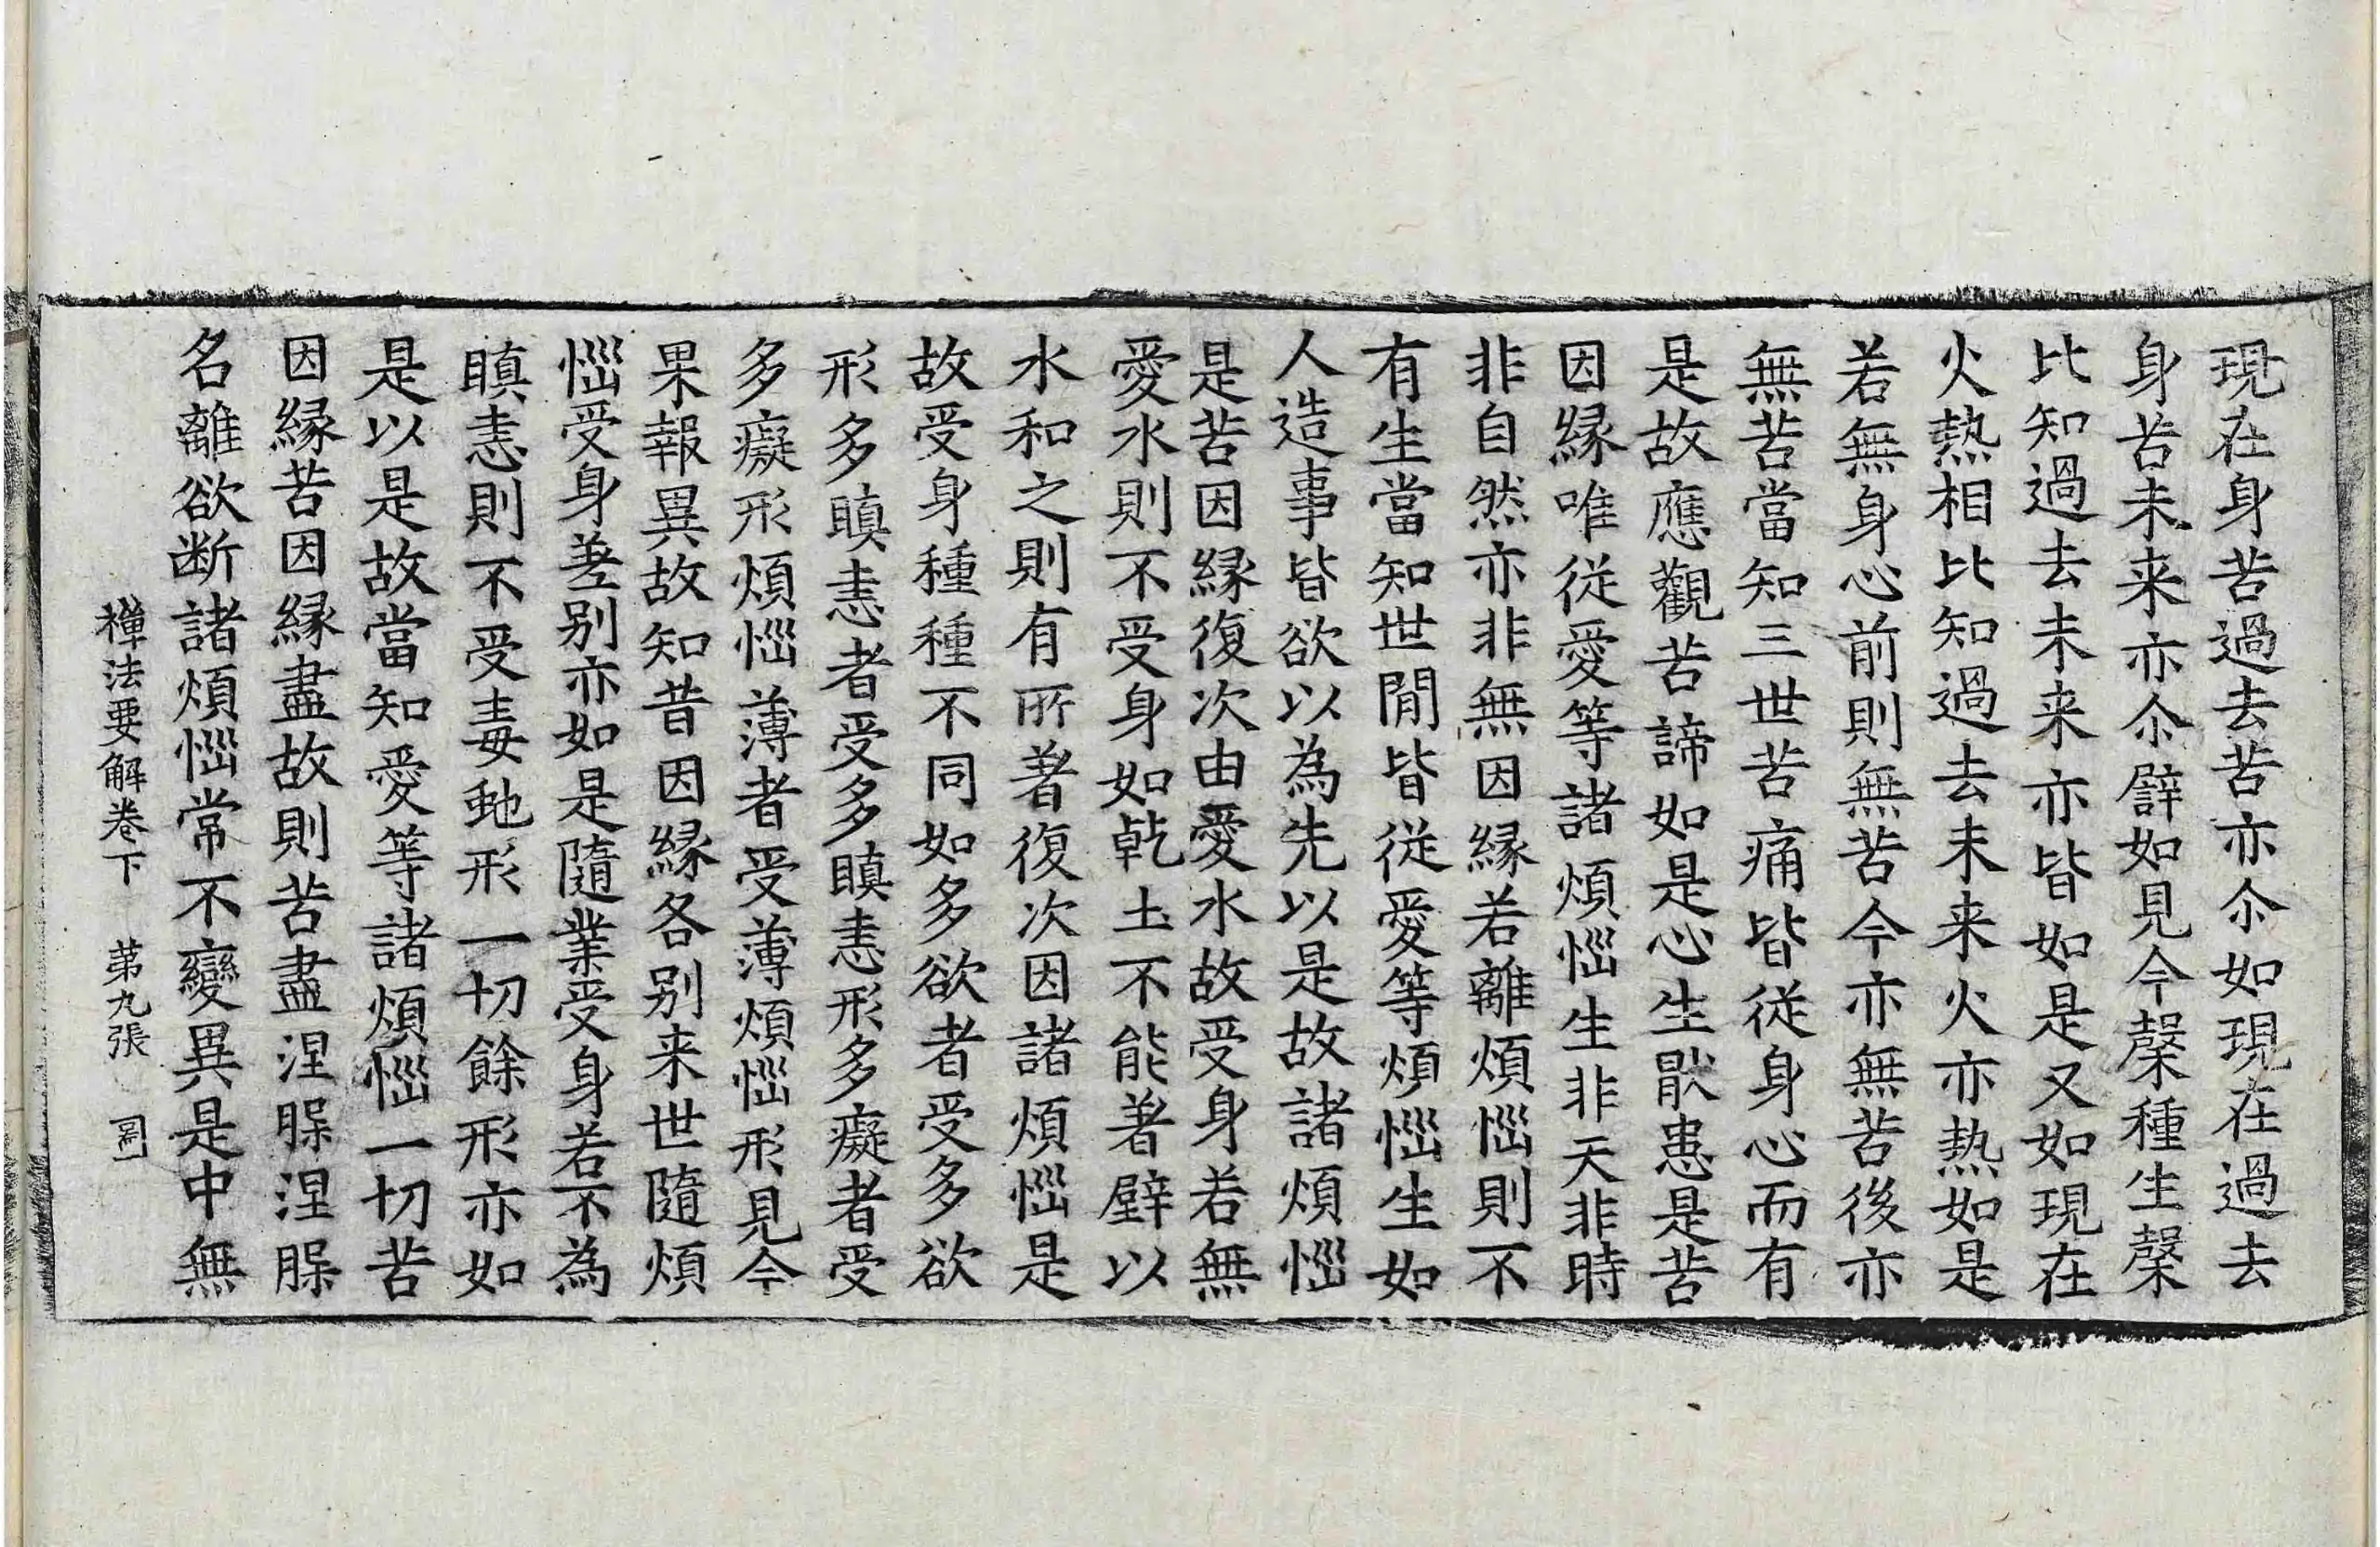 現在身苦過去苦亦尒如現在過去
身苦未来亦尒譬如見今䅽種生䅽
比知過去未来亦皆如是又如現在
火熱相比知過去未来火亦熱如是
若無身心前則無苦今亦無苦後亦
無苦當知三世苦痛皆従身心而有
是故應觀苦諦如是心生猒患是苦
因縁唯従愛等諸煩惱生非天非時
非自然亦非無因縁若離煩惱則不
有生當知世閒皆従愛等煩惱生如
人造事皆欲以為先以是故諸煩惱
是苦因縁復次由愛水故受身若無
愛水則不受身如乾土不能著壁以
水和之則有所著復次因諸煩惱是
故受身種種不同如多欲者受多欲
形多瞋恚者受多瞋恚形多癡者受
多癡形煩惱薄者受薄煩惱形見今
果報異故知昔因縁各别来世隨煩
惱受身差别亦如是隨業受身若不為
瞋恚則不受毒虵形一切餘形亦如
是以是故當知愛等諸煩惱一切苦
因縁苦因縁盡故則苦盡涅槃涅槃
名離欲断諸煩惱常不變異是中無
禅法要解卷下　苐九張